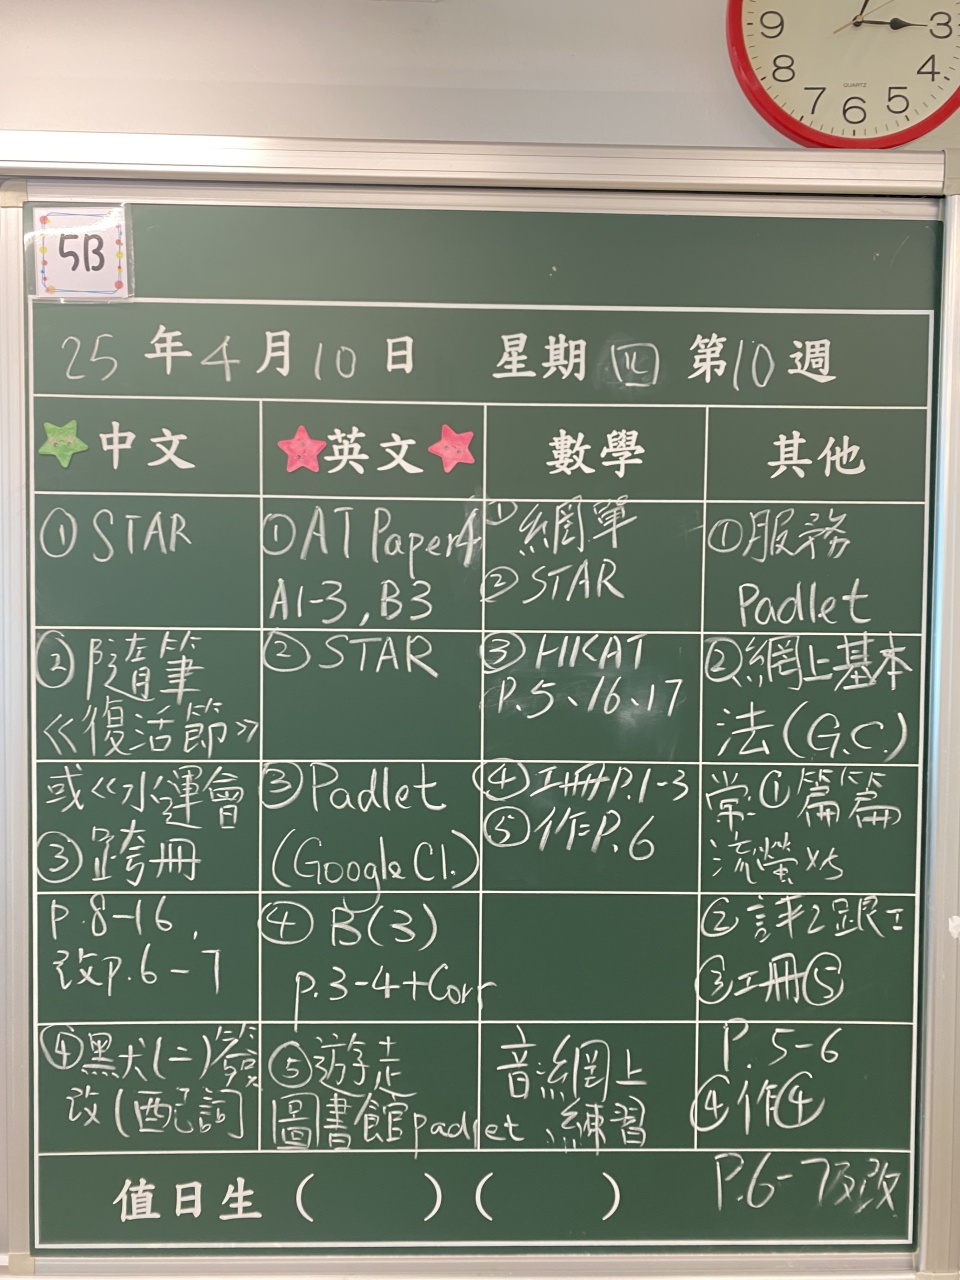 9
3
8
4
7
6
5
QUARTZ
5B
25年4月10日 星期四 第10週
中文
① STAR
② 隨筆
《復活節》
或《水運會》
③ 跨冊
P.8-16,
改p.6-7
④ 黑犬(二)簽
改(配詞
英文
① AT Paper4
A1-3, B3
② STAR
③ Padlet
(Google Cl.)
④ B(3)
p.3-4+Corr
⑤ 遊走
圖書館padlet
數學
① 網單
② STAR
③ HKAT
P.5、16、17
④ 工冊P.1-3
⑤ 作P.6
音:網上
練習
其他
① 服務
Padlet
② 網上基本
法(G.C.)
常:① 篇篇
流螢x5
② 評2跟工
③ 工冊⑤
P. 5-6
④ 作④
P.6-7及改
值日生 ( ) ( )